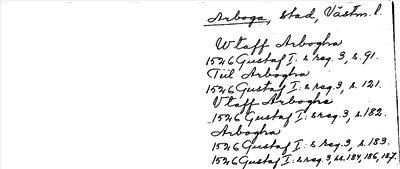 Arboga, stad, Västm. l.
Wtaff Arbogha
1526 Gustaf I: s reg. 3, s. 91.
Till Arbogha
1526 Gustaf I: s reg. 3, s. 121.
Vtaff Arbogha
1526 Gustaf I: s reg. 3, s. 182.
Arbogha
1526 Gustaf I: s reg. 3, s. 183.
1526 Gustaf I: s reg. 3, ss. 184, 186, 187.